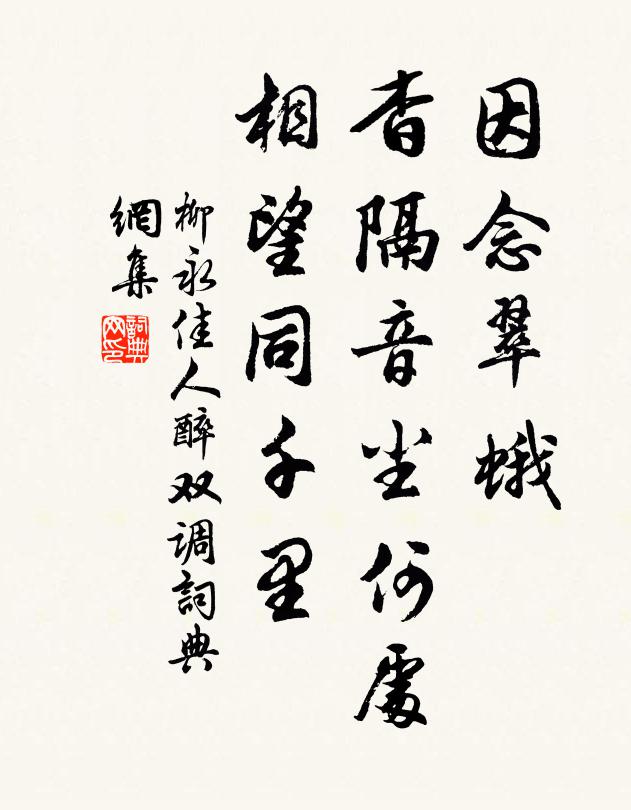 因念翠蛾
杳隔音尘何處
相望同千里
柳永佳人醉双调詞典
網集
詞典
网印